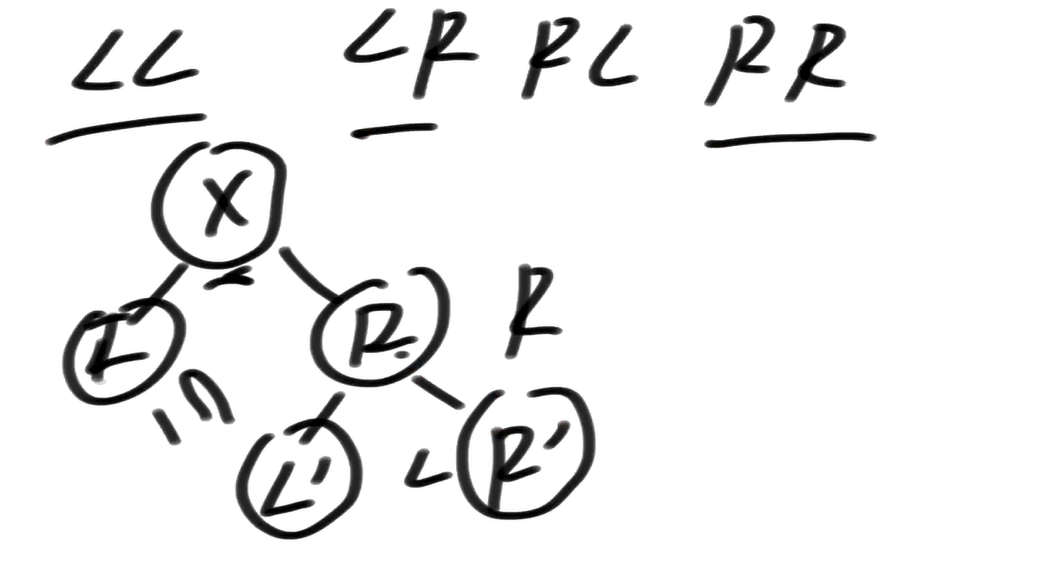 LL LR RL RR
X
L R R
L' L R'